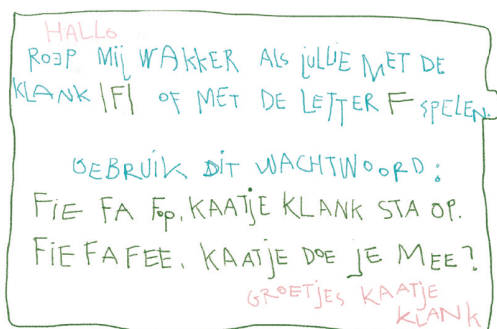 HALLO
ROEP MIJ WAKKER ALS JULLIE MET DE
KLANK |F| OF MET DE LETTER F SPELEN.
GEBRUIK DIT WACHTWOORD:
FIE FA FOP, KAATJE KLANK STA OP.
FIE FA FEE, KAATJE DOE JE MEE?
GROETJES KAATJE
KLANK